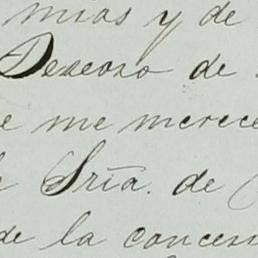 mias y de
Deseoso de
e me merece
Sría. de
de la conces